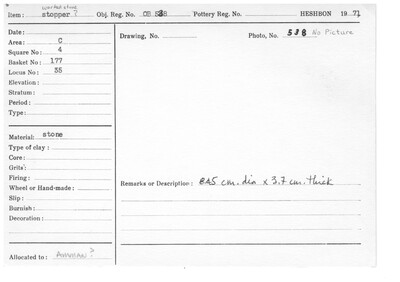 worked stone
Item: stopper ? Obj. Reg. No. OB. 538 Pottery Reg. No. HESHBON 1971
Date:
Area: C
Square No: 4
Basket No: 177
Locus No: 35
Elevation:
Stratum:
Period:
Type:
Drawing, No.
Photo, No. 538 No Picture
Material: stone
Type of clay:
Core:
Grits:
Firing:
Wheel or Hand-made:
Slip:
Burnish:
Decoration:
Remarks or Description: cm. dia x 3.7 cm. thick
Allocated to: AMMAN?